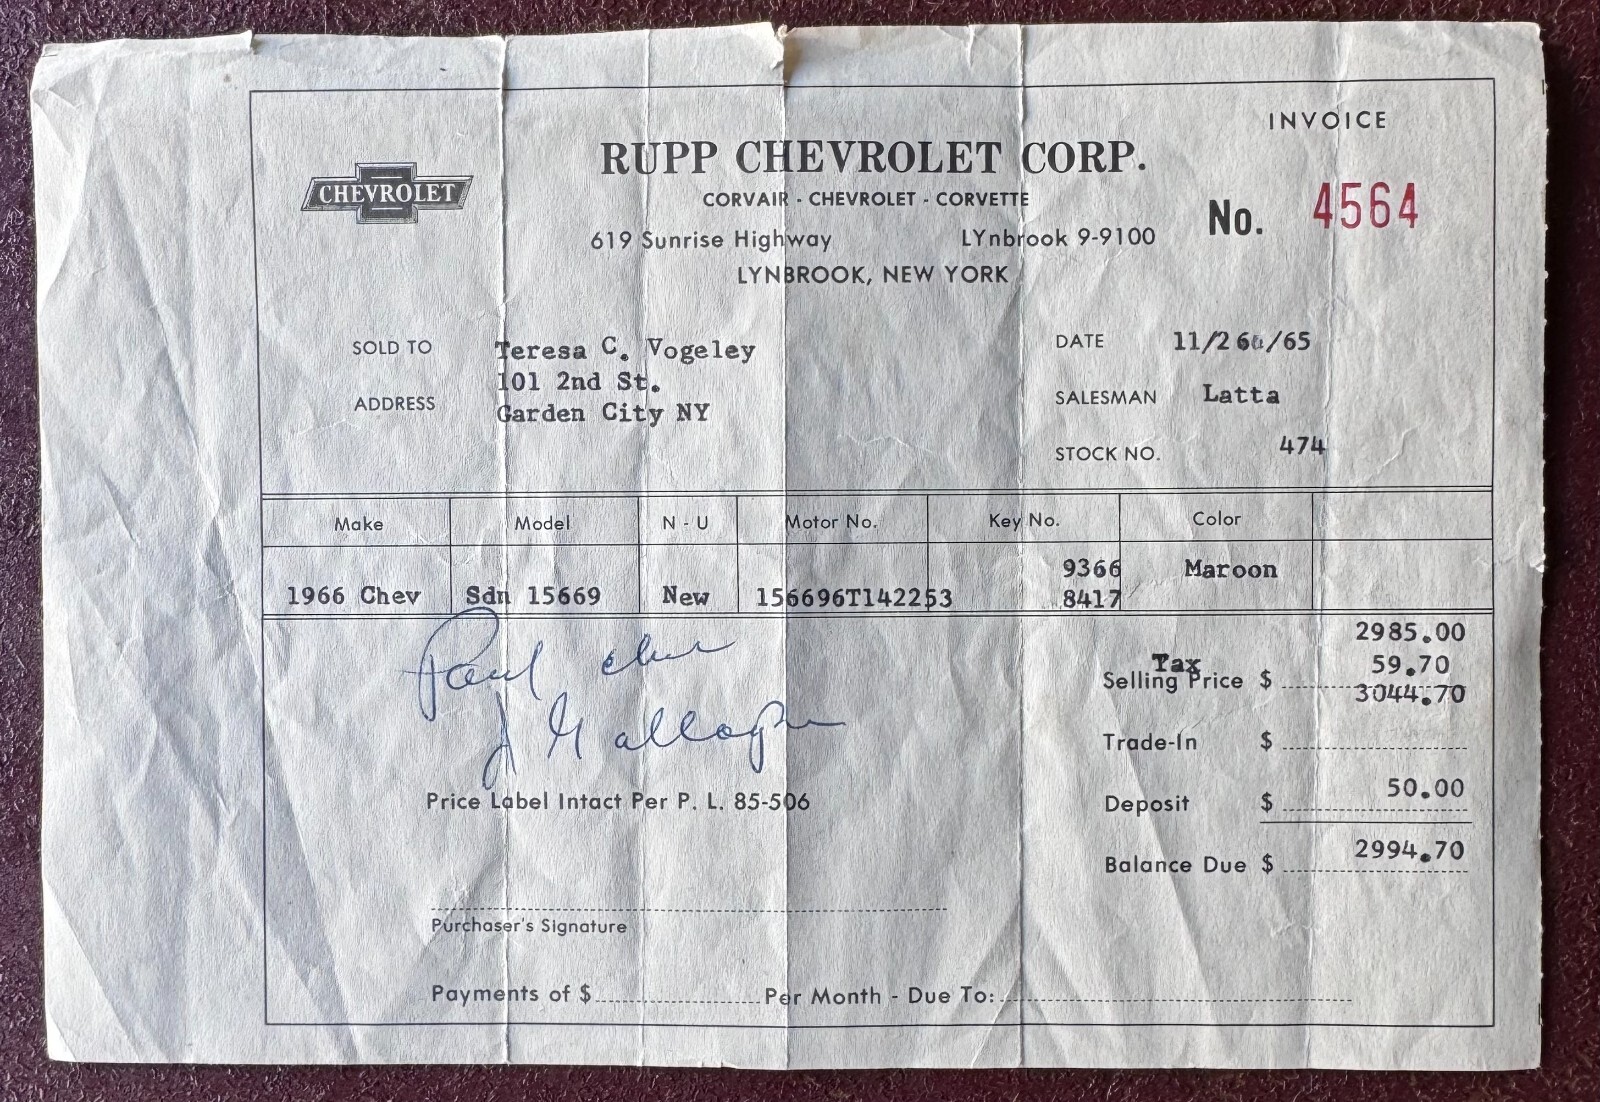 INVOICE
RUPP CHEVROLET CORP.
CHEVROLET
CORVAIR - CHEVROLET - CORVETTE
No. 4564
619 Sunrise Highway LYnbrook 9-9100
LYNBROOK, NEW YORK
SOLD TO Teresa C. Vogeley
101 2nd St.
ADDRESS Garden City NY
DATE 11/26/65
SALESMAN Latta
STOCK NO. 474
Make Model N - U Motor No. Key No. Color
9366 Maroon
1966 Chev Sdn 15669 New 156696T142253 8417
2985.00
Tax 59.70
Selling Price $ 3044.70
Paul
J Gallagher
Trade-In $
Price Label Intact Per P. L. 85-506
Deposit $ 50.00
Balance Due $ 2994.70
Purchaser's Signature
Payments of $ Per Month - Due To: